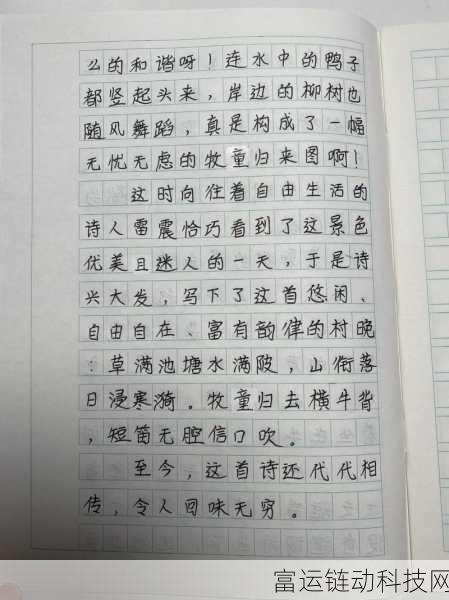 么的和谐呀！连水中的鸭子
都竖起头来，岸边的柳树也
随风舞蹈，真是构成了一幅
无忧无虑的牧童归来图啊！
这时向往着自由生活的
诗人雷震恰巧看到了这景色
优美且迷人的一天，于是诗
兴大发，写下了这首悠闲、
自由自在、富有韵律的村晚
：草满池塘水满陂，山衔落
日浸寒漪。牧童归去横牛背
，短笛无腔信口吹。
至今，这首诗还代代相
传，令人回味无穷。
富运链动科技网